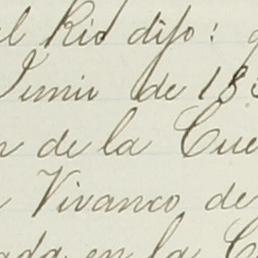 el Rio dijo: q
Junio de 183
n de la Cue
Vivanco de
ada en la C